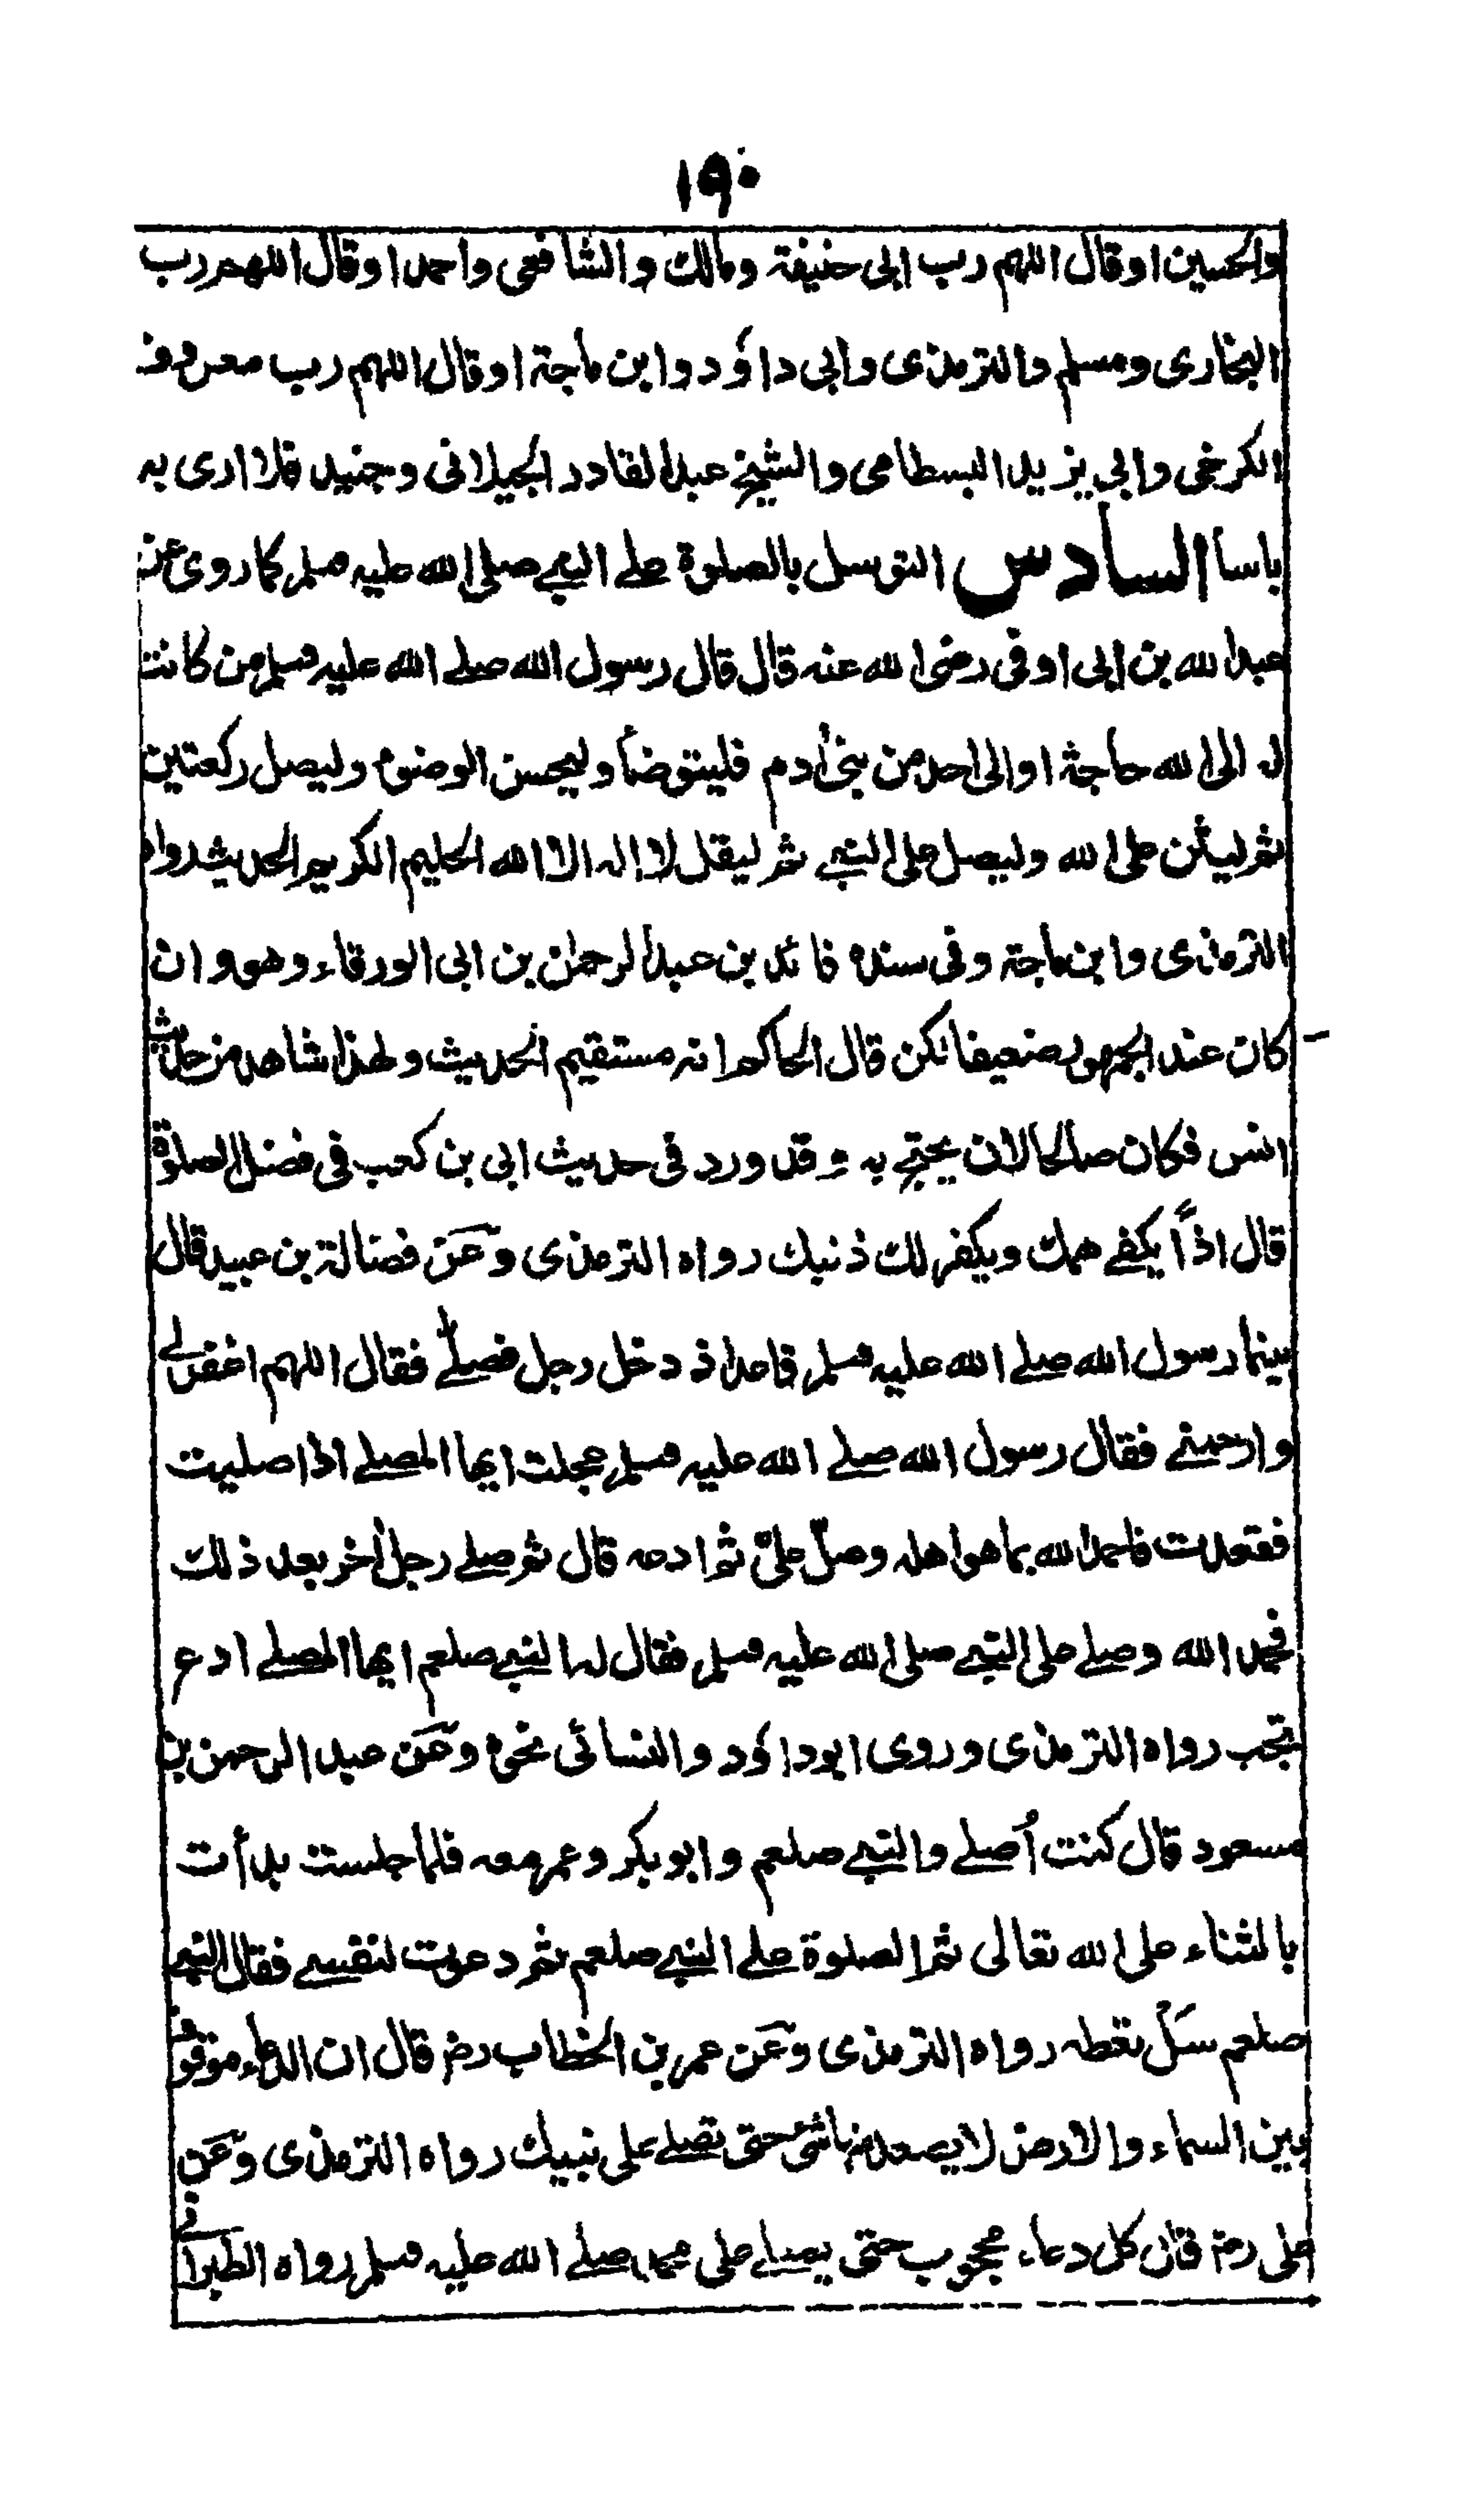 ١٩٠
والحسين او قال اللهم رب ابى حنيفة ومالك والشافعى واحمد او قال اللهم رب
البخارى ومسلم والترمذى وابى داؤد وابن ماجة او قال اللهم رب معروف
الكرخى وابى يزيد البسطامى والشيخ عبد القادر الجيلانى وجنيد فلا ارى به
باسا السادس التوسل بالصلوة على النبى صلى الله عليه وسلم كما روى عن
عبد الله بن ابى اوفى رضى الله عنه قال قال رسول الله صلى الله عليه وسلم من كانت
له الى الله حاجة او الى احد من بنى آدم فليتوضأ وليحسن الوضوء وليصل ركعتين
ثم ليثن على الله وليصل على النبى ثم ليقل لا اله الا الله الحليم الكريم الحديث رواه
الترمذى وابن ماجة وفى سنده فائد بن عبد الرحمٰن بن ابى الورقاء وهو وان
كان عند الجمهور ضعيفا لكن قال الحاكم انه مستقيم الحديث ولهذا شاهد من حديث
انس فكان صالحا لان يحتج به وقد ورد فى حديث ابى بن كعب فى فضل الصلوة
قال اذاً يكفى همك ويكفر لك ذنبك رواه الترمذى وعن فضالة بن عبيد قال
بينما رسول الله صلى الله عليه وسلم قاعد اذ دخل رجل فصلى فقال اللهم اغفر لى
وارحمنى فقال رسول الله صلى الله عليه وسلم عجلت ايها المصلى اذا صليت
فقعدت فاحمد الله بما هو اهله وصلّ علىّ ثم ادعه قال ثم صلى رجل آخر بعد ذلك
فحمد الله وصلى على النبى صلى الله عليه وسلم فقال له النبى صلعم ايها المصلى ادع
تجب رواه الترمذى وروى ابوداؤد والنسائى نحوه وعن عبد الرحمن بن
مسعود قال كنت أصلى والنبى صلعم وابو بكر وعمر معه فلما جلست بدأت
بالثناء على الله تعالى ثم الصلوة على النبى صلعم ثم دعوت لنفسى فقال النبى
صلعم سَلْ تعطه رواه الترمذى وعن عمر بن الخطاب رض قال ان الدعاء موقوف
بين السماء والارض لا يصعد منها شئ حتى تصلى على نبيك رواه الترمذى وعن
على رض قال كل دعاء محجوب حتى يصلى على محمد صلى الله عليه وسلم رواه الطبرانى